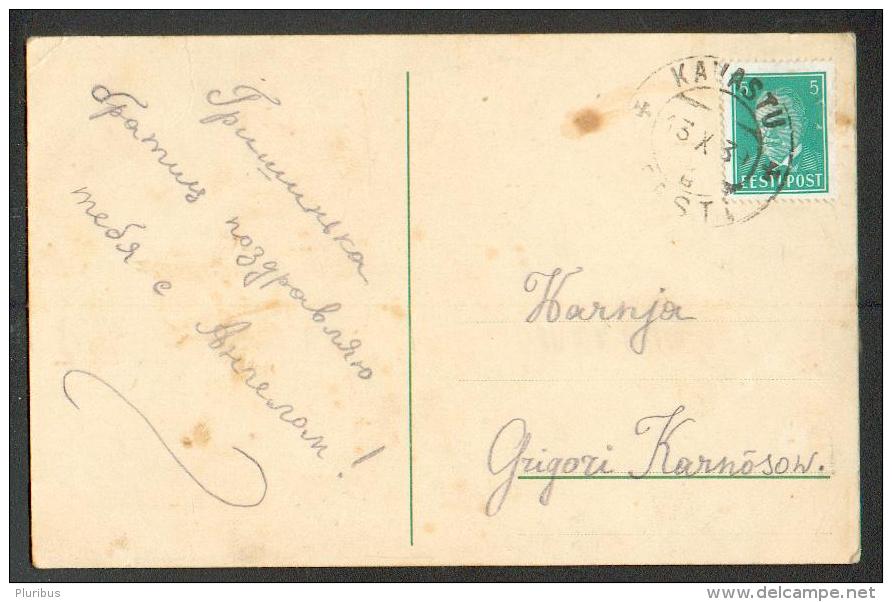 Гришинька
братиц поздравляю
тебя с Ангелом!
KAVASTU
13 X 3
EESTI
5 5
EESTI POST
Karnja
Grigori Karnõsow.
Pluribus
www.delcampe.net